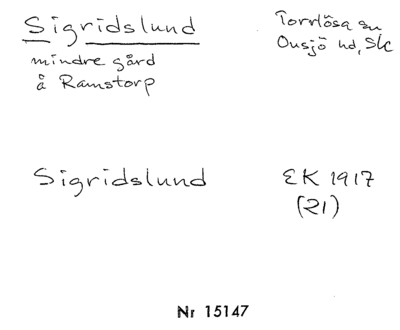 Sigridslund
mindre gård
å Ramstorp
Torrlösa sn
Onsjö hd, Sk
Sigridslund
EK 1917
(21)
Nr 15147